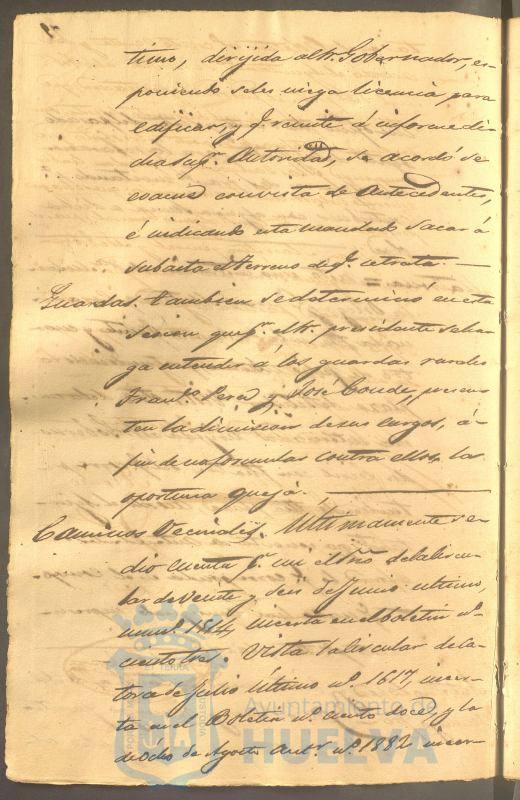 timo, dirijida al Sr. Gobernador, es-
poniendo se les niega licencia para
edificar, y q. remite á informe di-
cha Sup.r Autoridad, se acordó se
evacue con vista de Antecedentes,
é indicando esta mandado sacar á
subasta el terreno de q. se trata. —
Guardas. Tambien se determinó en esta
sesion que p.r el Sr. presidente se ha-
ga entender á los guardas rurales
Fran.co Perea y José Conde, presen-
ten la dimision de sus cargos, á
fin de no formular contra ellos la
oportuna queja. —
Caminos Vecinales. Ultimamente se
dio cuenta p.r mi el Srio de la Circu-
lar de veinte y seis de Junio ultimo,
num.o 1514, incerta en el boletin n.o
ciento tres. Vista la Circular de Ca-
torce de Julio ultimo n.o 1617, incer-
ta en el Boletin n.o ciento doce, y la
de ocho de Agosto ant.r n.o 1882 incer-
Ayuntamiento de
HUELVA